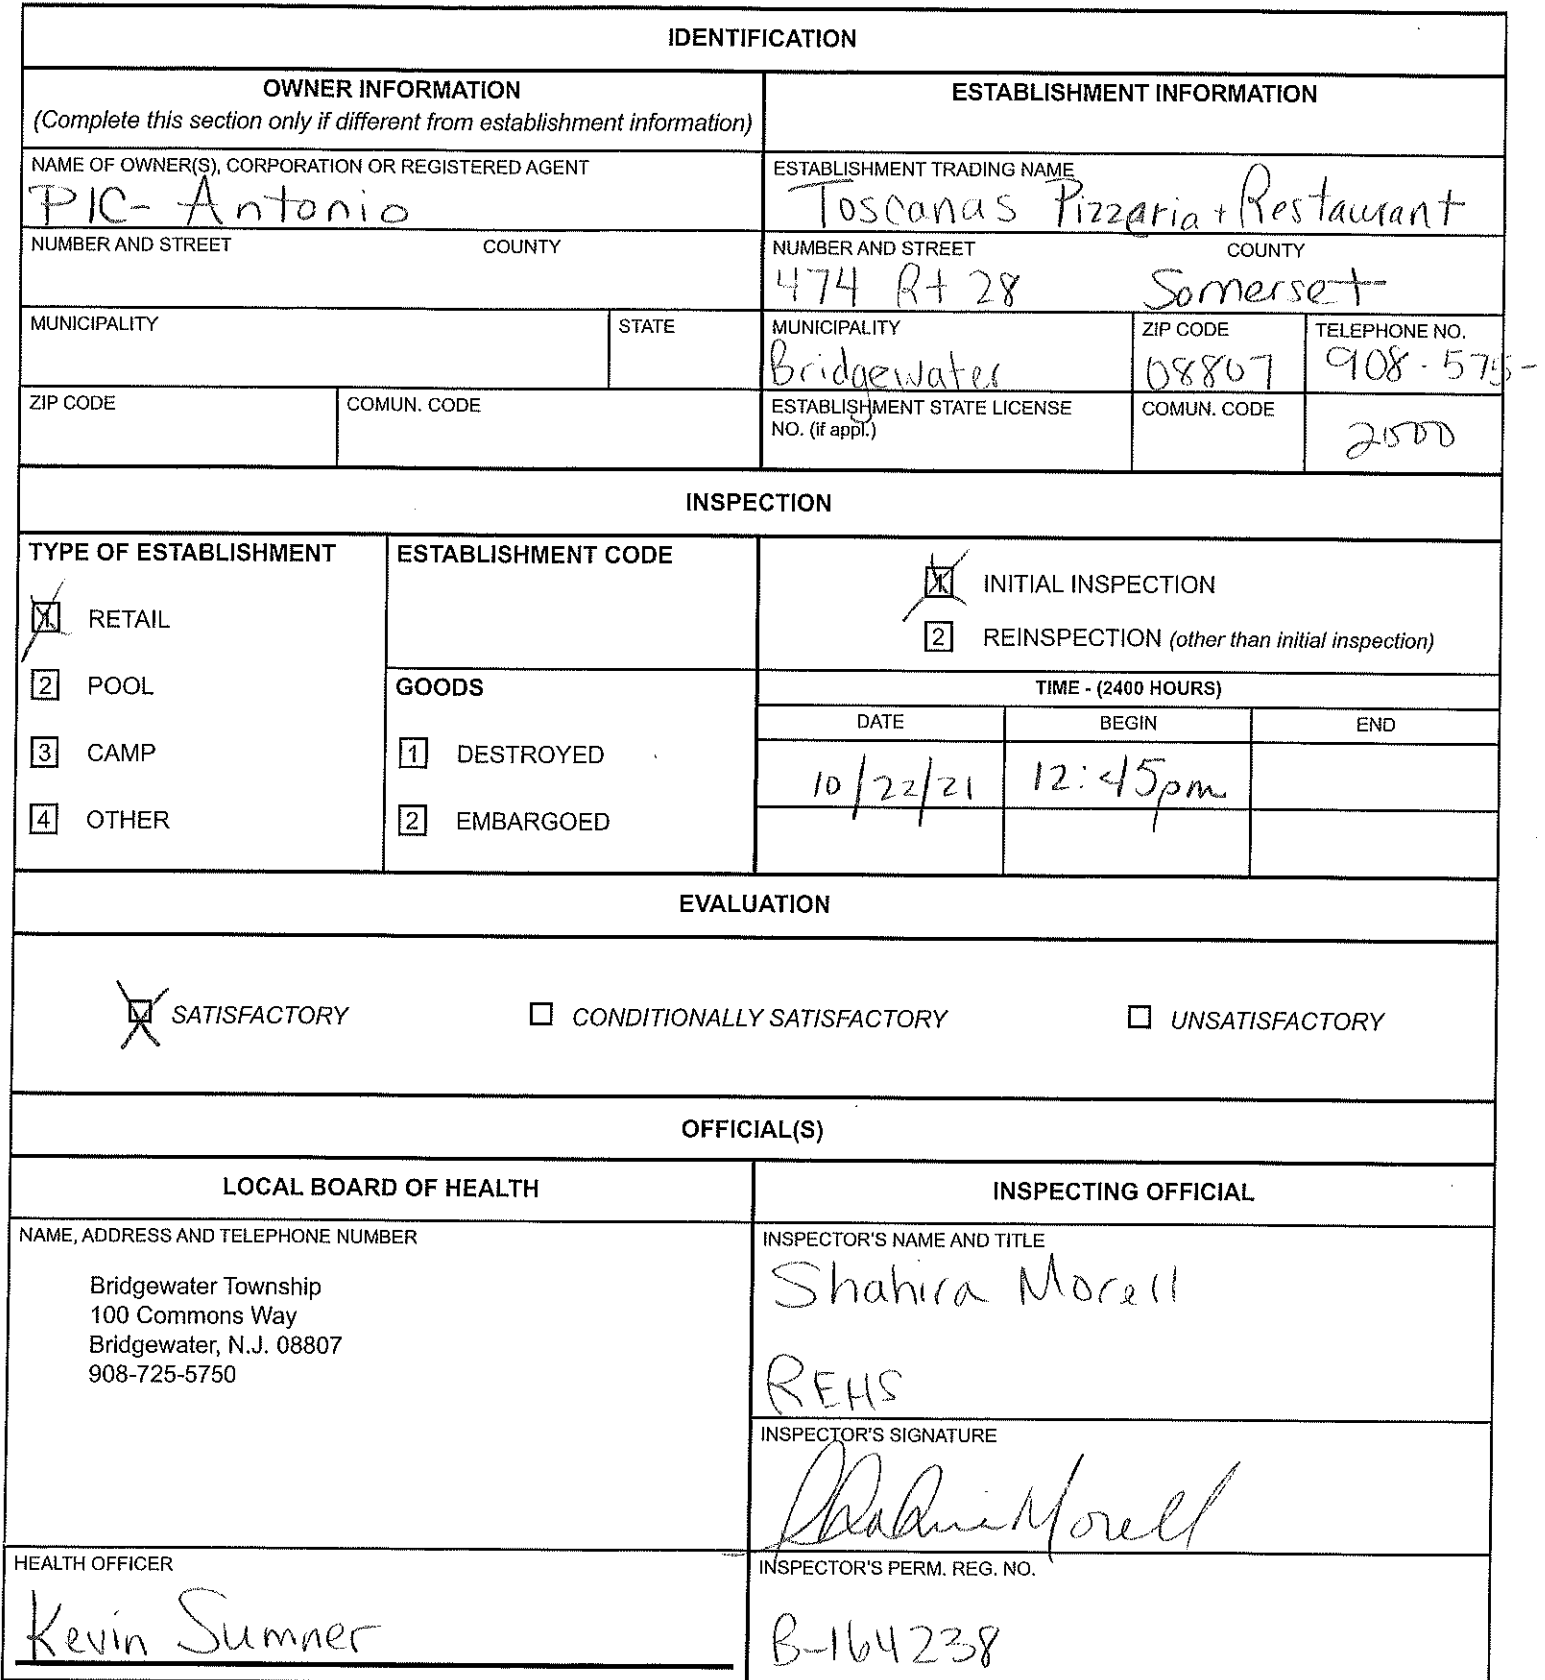 IDENTIFICATION
OWNER INFORMATION
(Complete this section only if different from establishment information)
ESTABLISHMENT INFORMATION
NAME OF OWNER(S), CORPORATION OR REGISTERED AGENT
PIC- Antonio
ESTABLISHMENT TRADING NAME
Toscanas Pizzeria + Restaurant
NUMBER AND STREET COUNTY
NUMBER AND STREET COUNTY
474 Rt 28 Somerset
MUNICIPALITY STATE
MUNICIPALITY ZIP CODE TELEPHONE NO.
Bridgewater 08807 908-575-
ZIP CODE COMUN. CODE
ESTABLISHMENT STATE LICENSE
NO. (if appl.)
COMUN. CODE
2500
INSPECTION
TYPE OF ESTABLISHMENT
1 RETAIL
2 POOL
3 CAMP
4 OTHER
ESTABLISHMENT CODE
GOODS
1 DESTROYED
2 EMBARGOED
1 INITIAL INSPECTION
2 REINSPECTION (other than initial inspection)
TIME - (2400 HOURS)
DATE BEGIN END
10/22/21 12:45pm
EVALUATION
SATISFACTORY CONDITIONALLY SATISFACTORY UNSATISFACTORY
OFFICIAL(S)
LOCAL BOARD OF HEALTH
NAME, ADDRESS AND TELEPHONE NUMBER
Bridgewater Township
100 Commons Way
Bridgewater, N.J. 08807
908-725-5750
HEALTH OFFICER
Kevin Sumner
INSPECTING OFFICIAL
INSPECTOR'S NAME AND TITLE
Shahira Morell
REHS
INSPECTOR'S SIGNATURE
Shahira Morell
INSPECTOR'S PERM. REG. NO.
B-164238